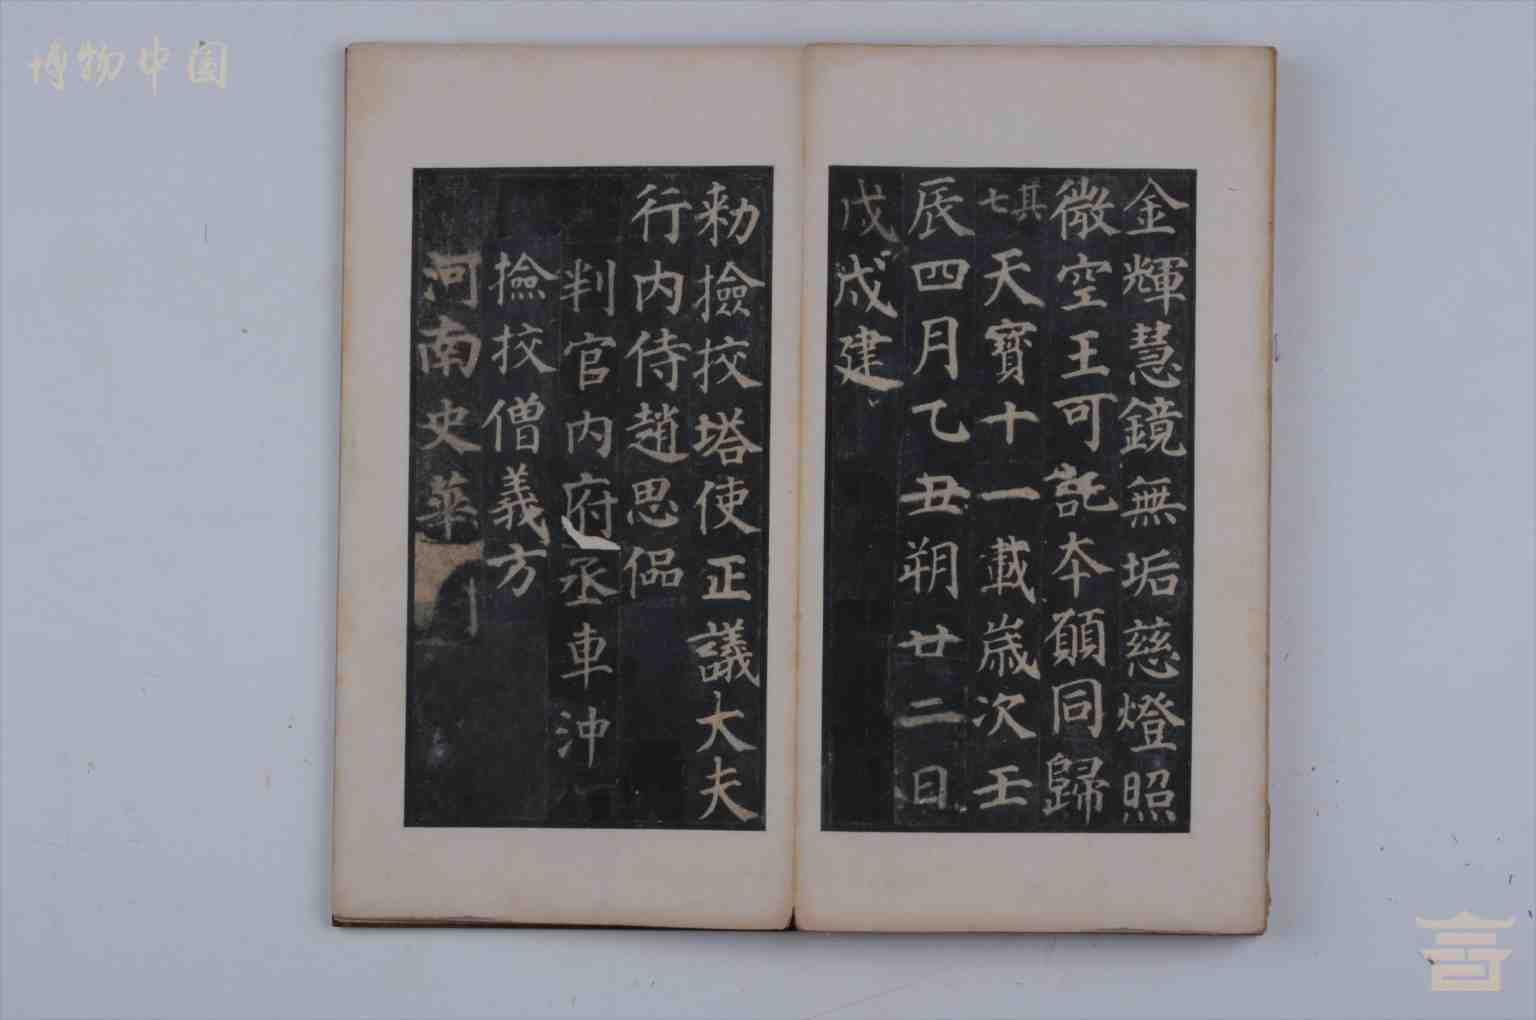 博物中国
金輝慧鏡無垢慈燈照
微空王可託本願同歸
其七
天寶十一載歲次壬
辰四月乙丑朔廿二日
戊戌建
勑撿挍塔使正議大夫
行內侍趙思侃
判官內府丞車沖
撿挍僧義方
河南史華